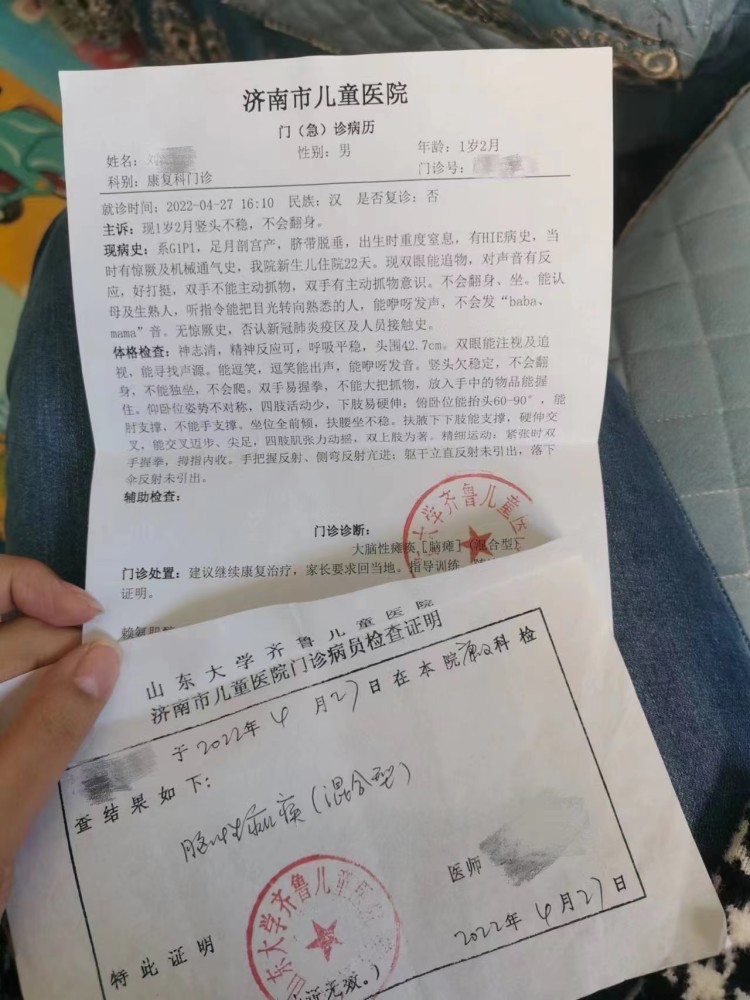 济南市儿童医院
门（急）诊病历
姓名：
性别：男
年龄：1岁2月
科别：康复科门诊
门诊号：
就诊时间：2022-04-27 16:10 民族：汉 是否复诊：否
主诉：现1岁2月竖头不稳，不会翻身。
现病史：系G1P1，足月剖宫产，脐带脱垂，出生时重度窒息，有HIE病史，当
时有惊厥及机械通气史，我院新生儿住院22天。现双眼能追物，对声音有反
应，好打挺，双手不能主动抓物，双手有主动抓物意识。不会翻身、坐。能认
母及生熟人，听指令能把目光转向熟悉的人，能咿呀发声，不会发“baba、
mama”音。无惊厥史，否认新冠肺炎疫区及人员接触史。
体格检查：神志清，精神反应可，呼吸平稳，头围42.7cm。双眼能注视及追
视，能寻找声源。能逗笑，逗笑能出声，能咿呀发音。竖头欠稳定，不会翻
身，不能独坐，不会爬。双手易握拳，不能大把抓物，放入手中的物品能握
住。仰卧位姿势不对称，四肢活动少，下肢易硬伸；俯卧位能抬头60-90°，能
肘支撑，不能手支撑。坐位全前倾，扶腰坐不稳。扶腋下下肢能支撑，硬伸交
叉，能交叉迈步、尖足，四肢肌张力动摇，双上肢为著。精细运动：紧张时双
手握拳，拇指内收。手把握反射、侧弯反射亢进；躯干立直反射未引出，落下
伞反射未引出。
辅助检查：
门诊诊断：
大脑性瘫痪[脑瘫]（混合型）
门诊处置：建议继续康复治疗，家长要求回当地。指导训练，
证明。
大学齐鲁儿童医
山东大学齐鲁儿童医院
济南市儿童医院门诊病员检查证明
于2022年4月27日在本院康复科检
查结果如下：
脑性瘫痪（混合型）
医师
特此证明
2022年4月27日
东大学齐鲁儿童医院
无效。）